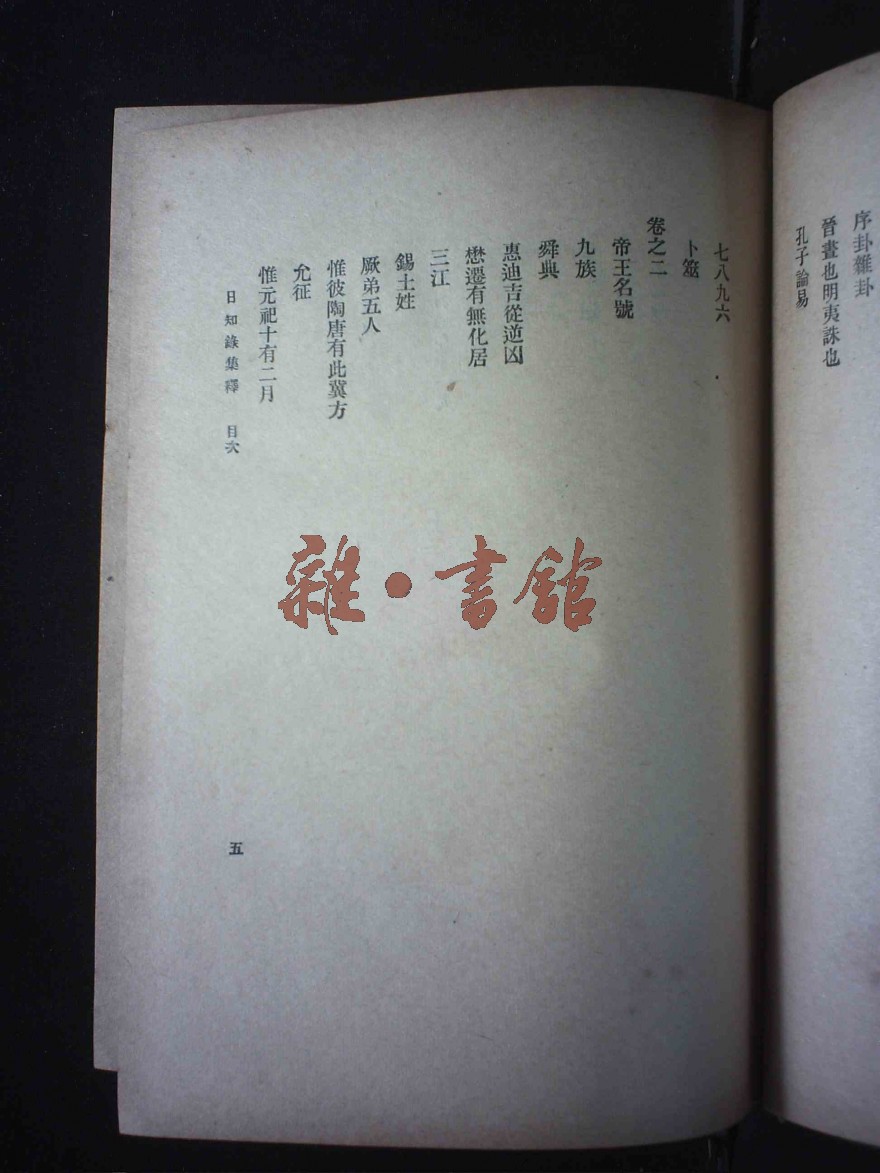 序卦雜卦
晉晝也明夷誅也
孔子論易
七八九六
卜筮
卷之二
帝王名號
九族
舜典
惠迪吉從逆凶
懋遷有無化居
三江
錫土姓
厥弟五人
惟彼陶唐有此冀方
允征
惟元祀十有二月
日知錄集釋 目次
五
雜·書館